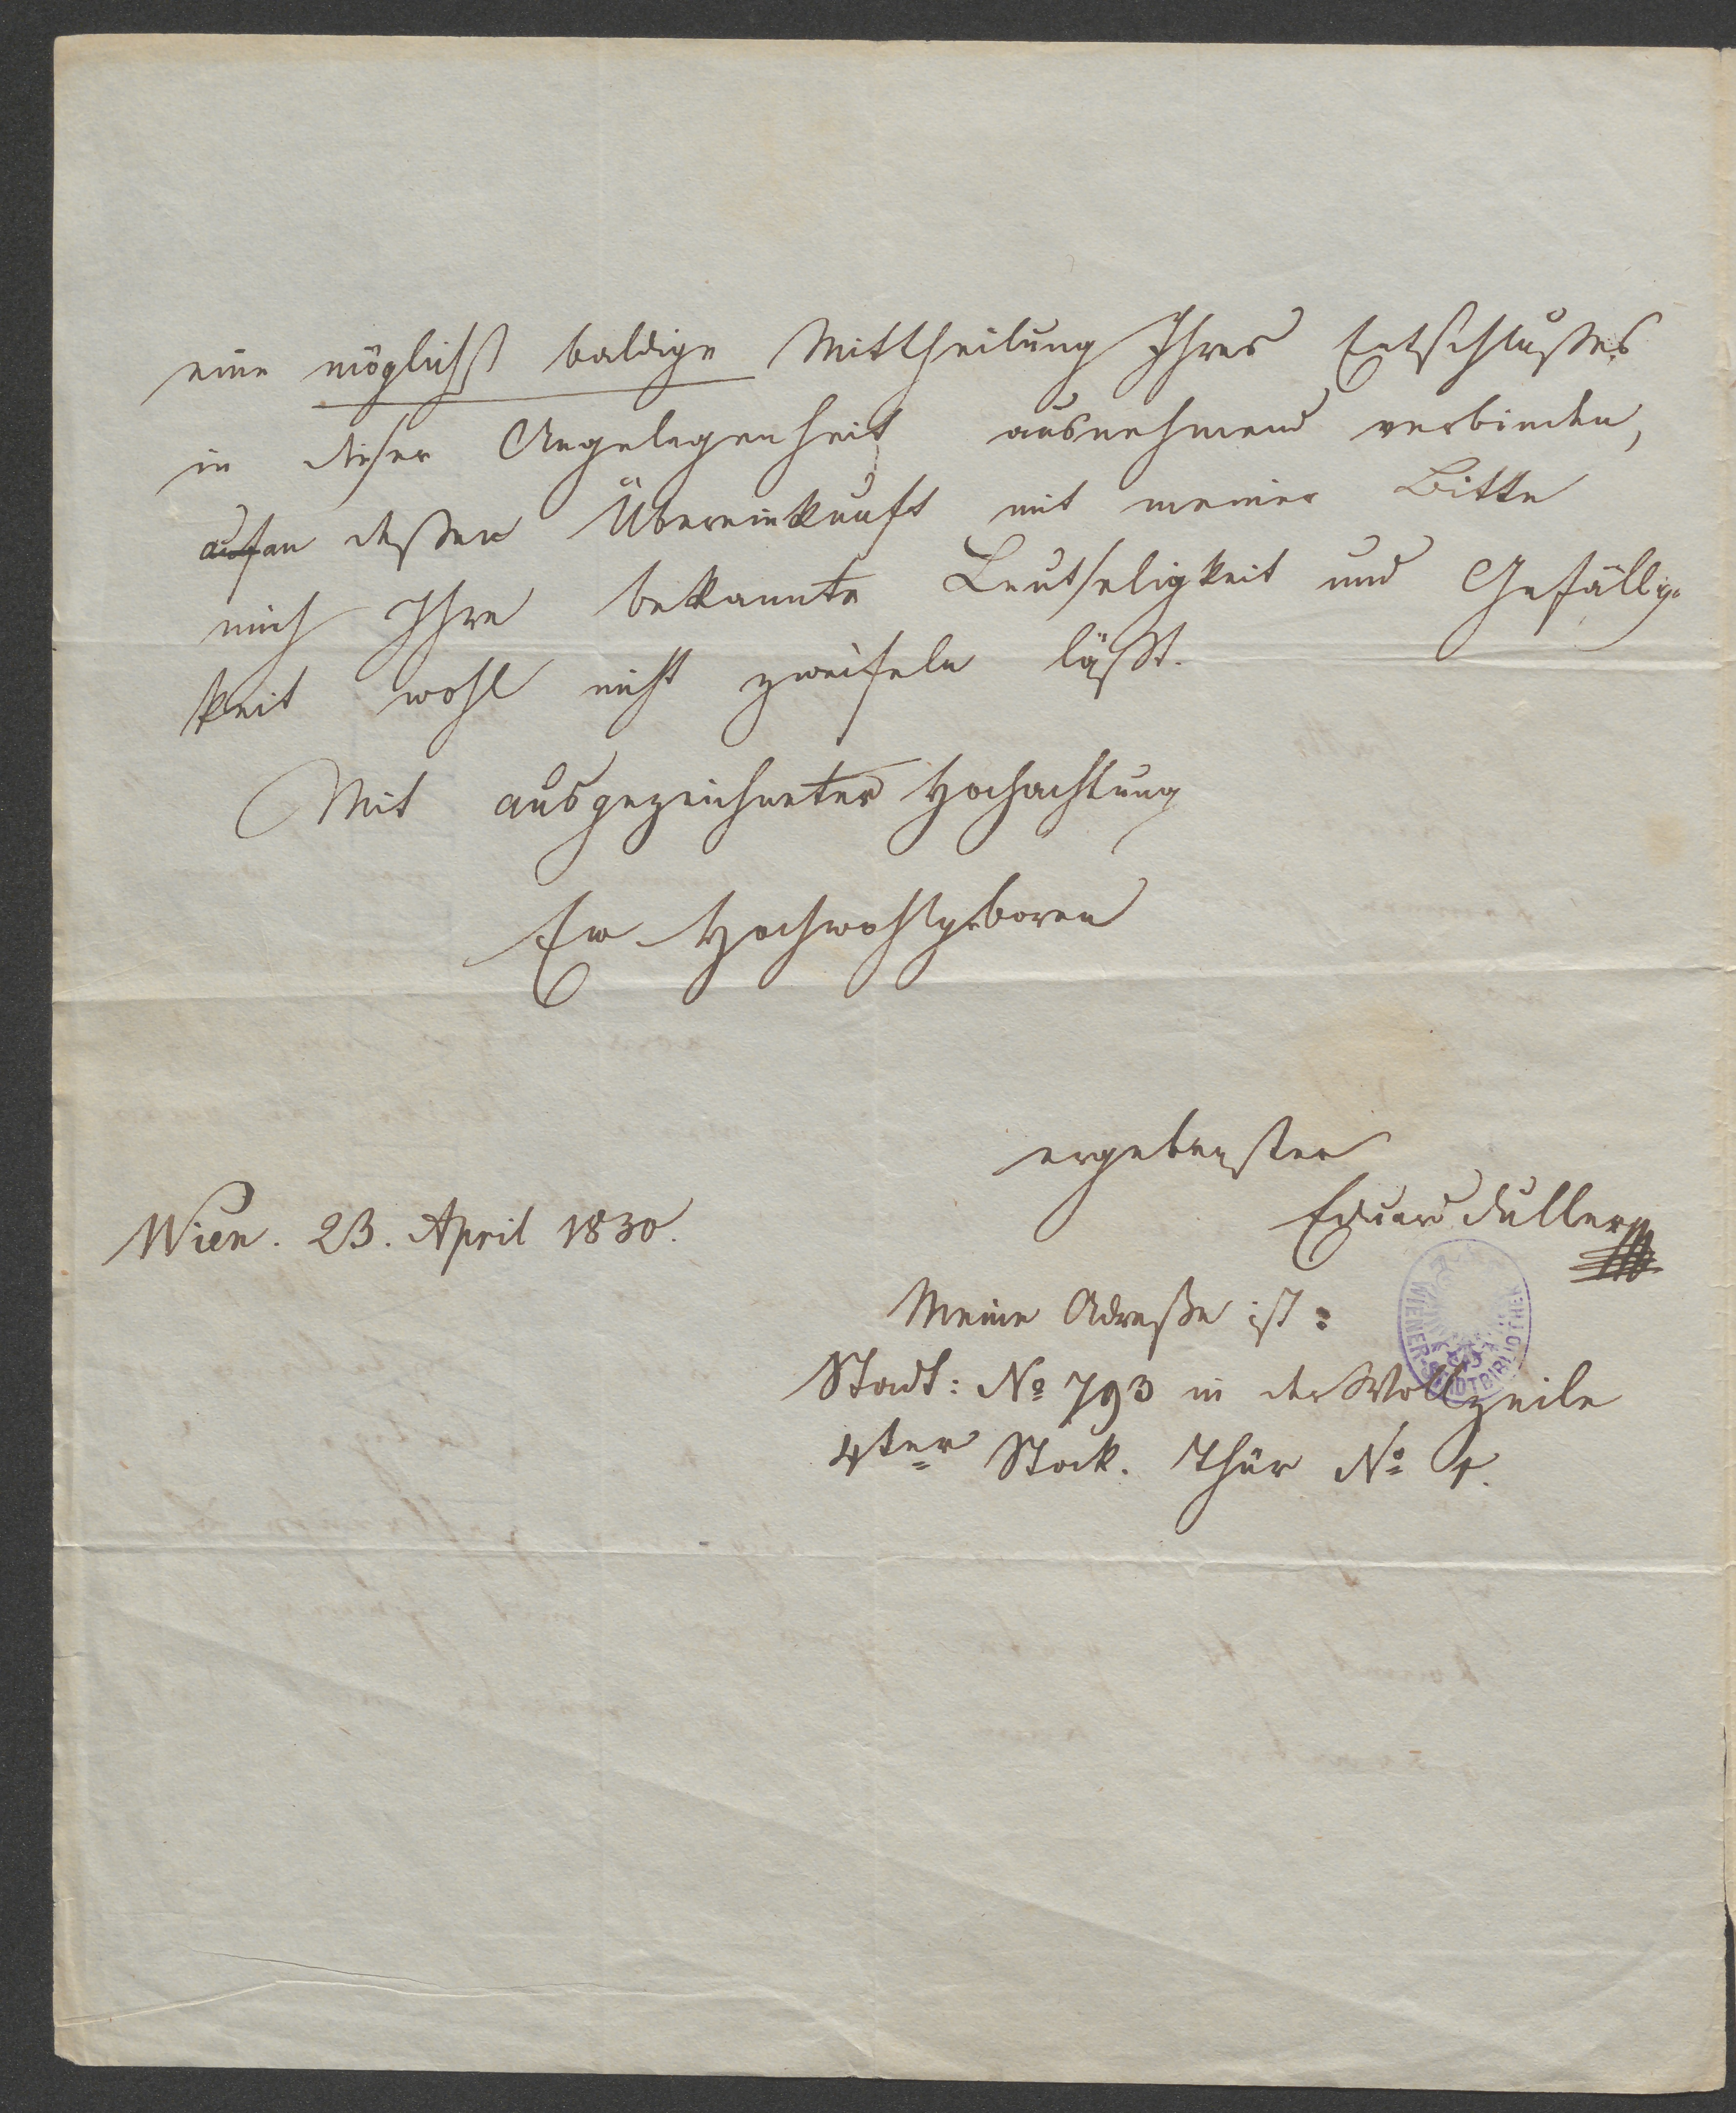 eine möglichst baldige Mittheilung Ihres Entschlußes
in dieser Angelegenheit ausnehmend verbinden,
auf an deßen Übereinkunft mit meiner Bitte
mich Ihre bekannte Leutseligkeit und Gefällig-
keit wohl nicht zweifeln läßt.
Mit ausgezeichneter Hochachtung
Ew Hochwohlgeboren
ergebenster
Eduard Duller
Wien. 23. April 1830.
Meine Adreße ist:
Stadt: No 793 in der Wollzeile
4ter Stock. Thür No
WIENER STADTBIBLIOTHEK